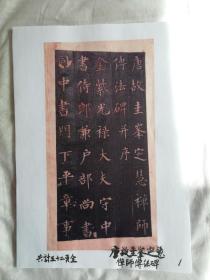 唐故圭峯定慧禪師
傳法碑并序
金紫光祿大夫守中
書侍郎兼戶部尚書
同中書門下平章事
唐故圭峯定慧
禅师传法碑
共計五十二頁全
1